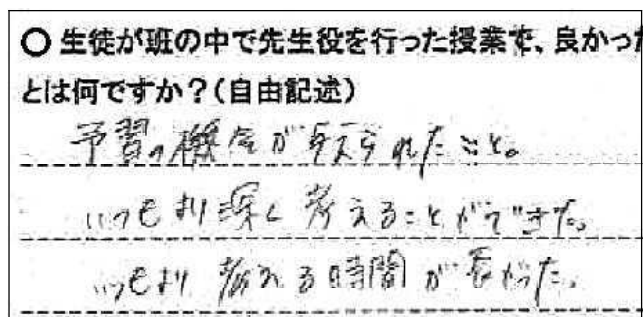 ○ 生徒が班の中で先生役を行った授業で、良かった
とは何ですか？（自由記述）
予習の機会が与えられたこと。
いつもより深く考えることができた。
いつもより考える時間が長かった。